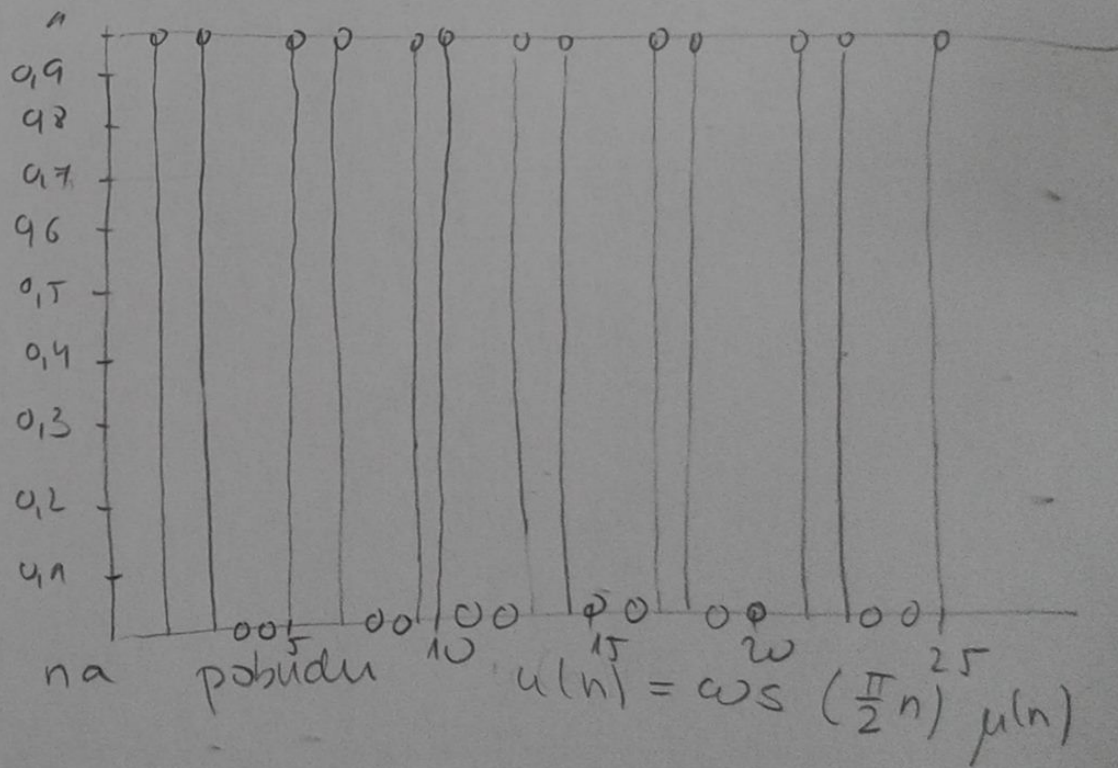 1
0,9
0,8
0,7
0,6
0,5
0,4
0,3
0,2
0,1
5 10 15 20 25
na pobudu u(n) = cos (π/2 n) μ(n)